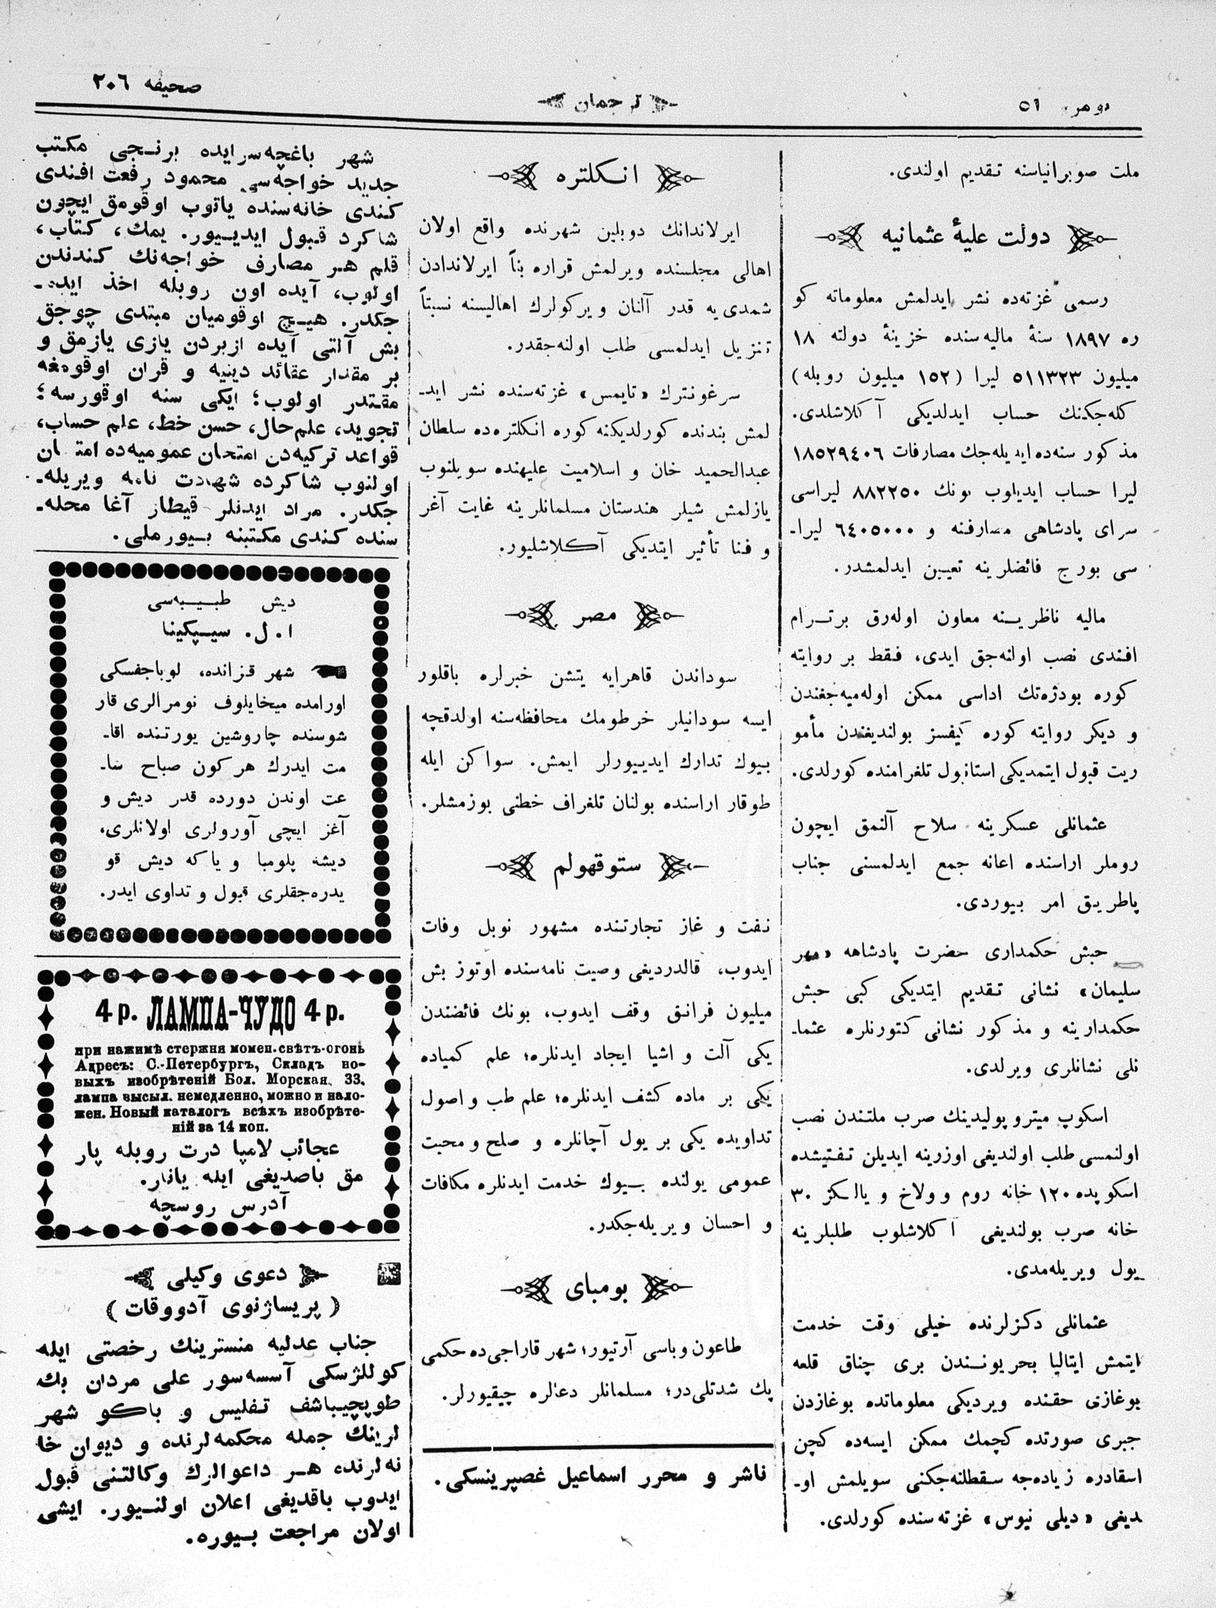 نومرو ٥١
ترجمان
صحیفه ٢٠٦
ملت صوبرانیاسنه تقدیم اولندی.
دولت علیهٔ عثمانیه
رسمی غزته‌ده نشر ایدلمش معلوماته کو
ره ١٨٩٧ سنهٔ مالیه‌سنده خزینهٔ دولته ١٨
میلیون ٥١١٣٢٣ لیرا (١٥٢ میلیون روبله)
کله‌جکنك حساب ایدلدیکی آکلاشلدی.
مذکور سنه‌ده ایدیله‌جك مصارفات ١٨٥٢٩٤٠٦
لیرا حساب ایدیلوب بونك ٨٨٢٢٥٠ لیراسی
سرای پادشاهی مصارفنه و ٦٤٠٥٠٠٠ لیرا‌ـ
سی بورج فائضلرینه تعیین ایدلمشدر.
مالیه ناظرینه معاون اوله‌رق برترام
افندی نصب اولنه‌جق ایدی، فقط بر روایته
کوره بودژه‌نك اداسی ممکن اوله‌میه‌جغندن
و دیکر روایته کوره کیفسز بولندیغندن مأمو
ریت قبول ایتمدیکی استانبول تلغرامنده کورلدی.
عثمانلی عسکرینه سلاح آلنمق ایچون
روملر اراسنده اعانه جمع ایدلمسنی جناب
پاطریق امر بیوردی.
حبش حکمداری حضرت پادشاهه «مهر
سلیمان» نشانی تقدیم ایتدیکی کبی حبش
حکمدارینه و مذکور نشانی کتورنلره عثما‌ـ
نلی نشانلری ویرلدی.
اسکوپ میتروپولیدینك صرب ملتندن نصب
اولنمسی طلب اولندیغی اوزرینه ایدیلن تفتیشده
اسکوپده ١٢٠ خانه روم و ولاخ و یالکز ٣٠
خانه صرب بولندیغی آکلاشلوب طلبلرینه
یول ویریله‌مدی.
عثمانلی دکزلرنده خیلی وقت خدمت
ایتمش ایتالیا بحریونندن بری چناق قلعه
بوغازی حقنده ویردیکی معلوماتده بوغازدن
جبری صورتده کچمك ممکن ایسه‌ده کچن
اسقادره زیاده‌جه سقطلنه‌جکنی سویلمش او‌ـ
لدیغی «دیلی نیوس» غزته‌سنده کورلدی.
انکلتره
ایرلاندانك دوبلین شهرنده واقع اولان
اهالی مجلسنده ویرلمش قراره بناً ایرلاندادن
شمدی‌یه قدر آلنان ویرکولرك اهالیسنه نسبتاً
تنزیل ایدلمسی طلب اولنه‌جقدر.
سرغونترك «تایمس» غزته‌سنده نشر اید‌ـ
لمش بندنده کورلدیکنه کوره انکلتره‌ده سلطان
عبدالحمید خان و اسلامیت علیهنده سویلنوب
یازلمش شیلر هندستان مسلمانلرینه غایت آغر
و فنا تأثیر ایتدیکی آکلاشلیور.
مصر
سوداندن قاهرایه یتشن خبرلره باقلور
ایسه سودانیلر خرطومك محافظه‌سنه اولدقچه
بیوك تدارك ایدییورلر ایمش. سواکن ایله
طوقار اراسنده بولنان تلغراف خطنی بوزمشلر.
ستوقهولم
نفت و غاز تجارتنده مشهور نوبل وفات
ایدوب، قالدردیغی وصیت نامه‌سنده اوتوز بش
میلیون فرانق وقف ایدوب، بونك فائضندن
یکی آلت و اشیا ایجاد ایدنلره؛ علم کمیاده
یکی بر ماده کشف ایدنلره؛ علم طب و اصول
تداویده یکی بر یول آچانلره و صلح و محبت
عمومی یولنده بیوك خدمت ایدنلره مکافات
و احسان ویریله‌جکدر.
بومبای
طاعون وباسی آرتیور؛ شهر قاراجی‌ده حکمی
پك شدتلی‌در؛ مسلمانلر دعالره چیقیورلر.
ناشر و محرر اسماعیل غصپرینسکی.
شهر باغچه‌سرایده برنجی مکتب
جدید خواجه‌سی محمود رفعت افندی
کندی خانه‌سنده یاتوب اوقومق ایچون
شاکرد قبول ایدییور. یمك، کتاب،
قلم هر مصارف خواجه‌نك کندندن
اولوب، آیده اون روبله اخذ ایده‌ـ
جکدر. هیچ اوقومیان مبتدی چوجق
بش آلتی آیده ازبردن یازی یازمق و
بر مقدار عقائد دینیه و قران اوقومغه
مقتدر اولوب؛ ایکی سنه اوقورسه؛
تجوید، علم‌حال، حسن خط، علم حساب،
قواعد ترکیه‌دن امتحان عمومیه‌ده امتحان
اولنوب شاکرده شهادت نامه ویریله‌ـ
جکدر. مراد ایدنلر قیطاز آغا محله‌ـ
سنده کندی مکتبنه بیورملی.
دیش طبیبه‌سی
ا. ل. سیپکینا
شهر قزانده، لوباجفسکی
اورامده میخایلوف نومرالری قار
شوسنده چاروشین یورتنده اقا‌ـ
مت ایدرك هرکون صباح سا‌ـ
عت اوندن دورده قدر دیش و
آغز ایچی آورولری اولانلری،
دیشه پلومبا و یاکه دیش قو
یدره‌جقلری قبول و تداوی ایدر.
4 р. ЛАМПА-ЧУДО 4 р.
при нажимѣ стержня момен. свѣтъ-огонь
Адресъ: С.-Петербургъ, Складъ но-
выхъ изобрѣтеній Бол. Морская, 33.
лампа высыл. немедленно, можно и нало-
жен. Новый каталогъ всѣхъ изобрѣте-
ній за 14 коп.
عجائب لامپا درت روبله پار
مق باصدیغی ایله یانار.
آدرس روسچه
دعوی وکیلی
(پریساژنوی آدووقات)
جناب عدلیه منسترینك رخصتی ایله
کوللژسکی آسسه‌سور علی مردان بك
طوپچیباشف تفلیس و باکو شهر
لرینك جمله محکمه‌لرنده و دیوان خا
نه‌لرنده هر داعوالرك وکالتنی قبول
ایدوب باقدیغی اعلان اولنیور. ایشی
اولان مراجعت بیوره.